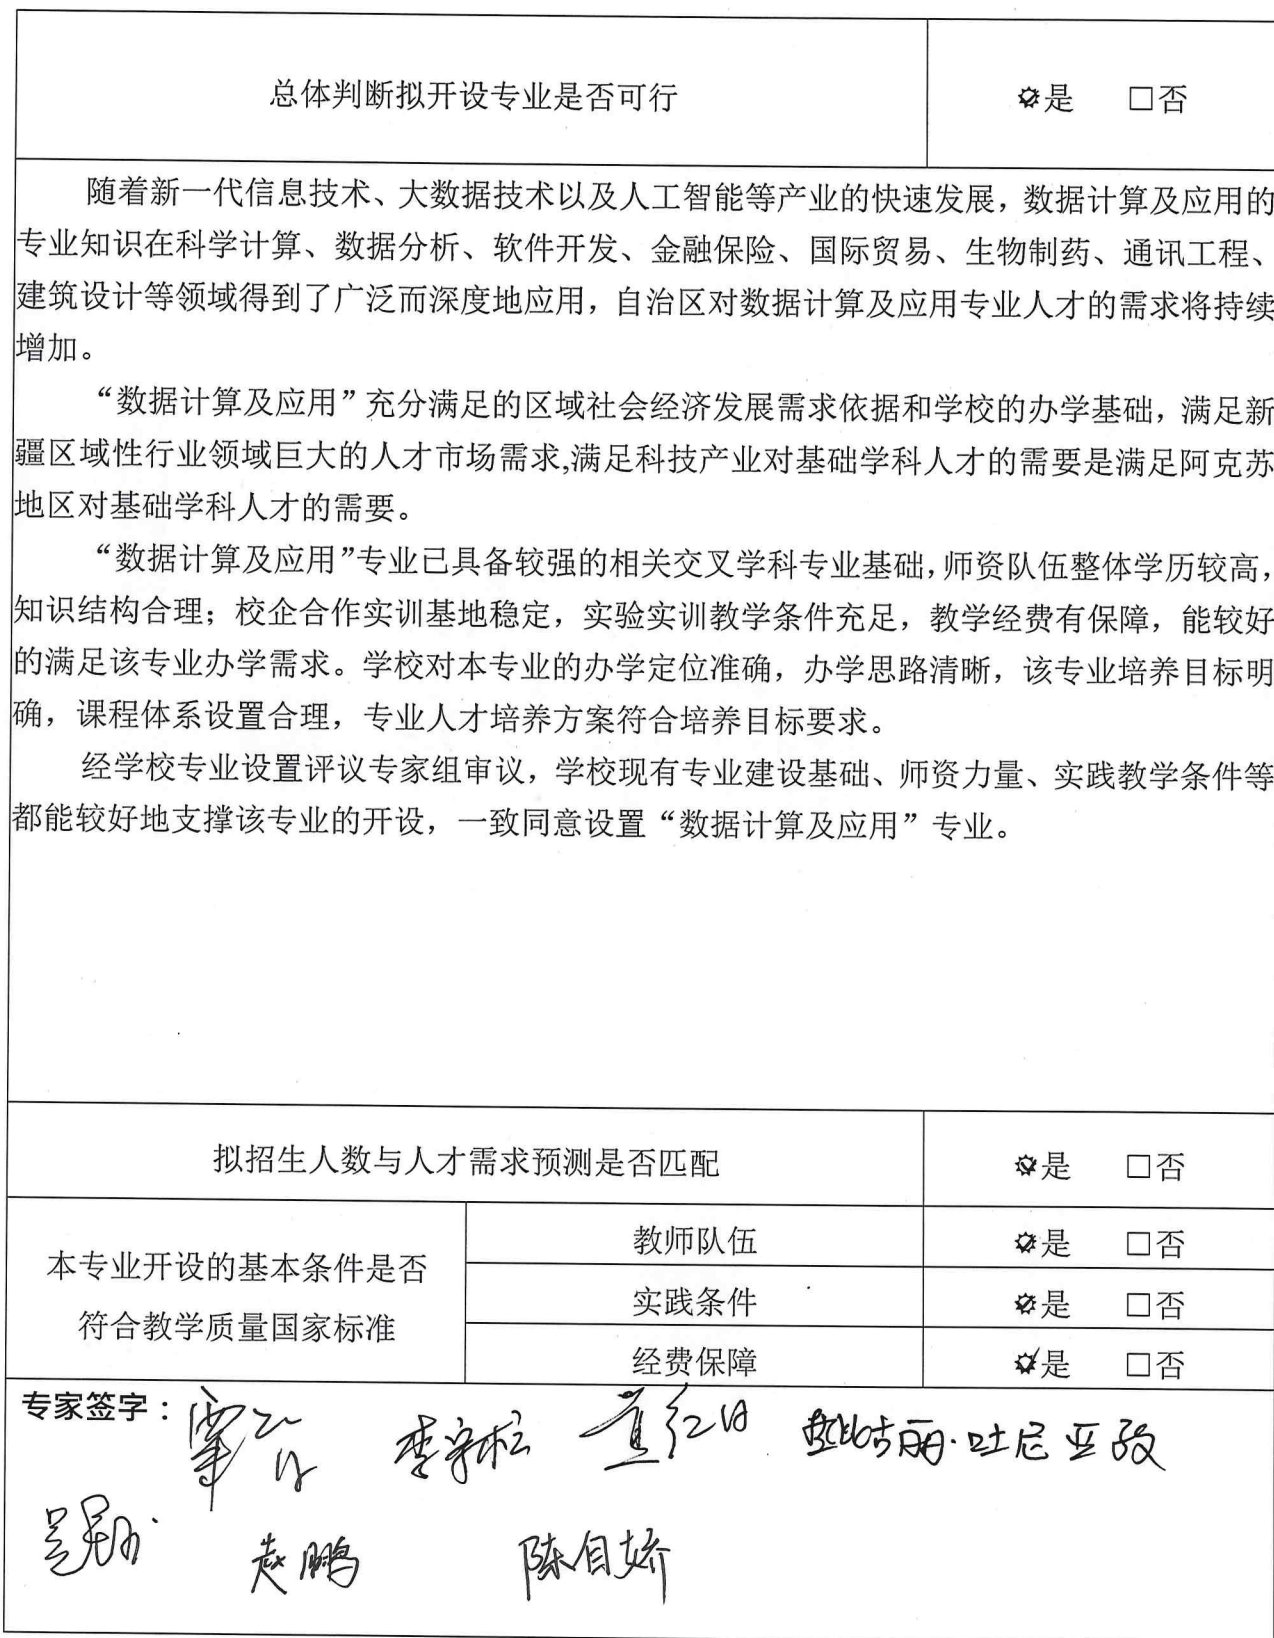 总体判断拟开设专业是否可行 ☑是 □否
随着新一代信息技术、大数据技术以及人工智能等产业的快速发展，数据计算及应用的
专业知识在科学计算、数据分析、软件开发、金融保险、国际贸易、生物制药、通讯工程、
建筑设计等领域得到了广泛而深度地应用，自治区对数据计算及应用专业人才的需求将持续
增加。
“数据计算及应用”充分满足的区域社会经济发展需求依据和学校的办学基础，满足新
疆区域性行业领域巨大的人才市场需求,满足科技产业对基础学科人才的需要是满足阿克苏
地区对基础学科人才的需要。
“数据计算及应用”专业已具备较强的相关交叉学科专业基础，师资队伍整体学历较高，
知识结构合理；校企合作实训基地稳定，实验实训教学条件充足，教学经费有保障，能较好
的满足该专业办学需求。学校对本专业的办学定位准确，办学思路清晰，该专业培养目标明
确，课程体系设置合理，专业人才培养方案符合培养目标要求。
经学校专业设置评议专家组审议，学校现有专业建设基础、师资力量、实践教学条件等
都能较好地支撑该专业的开设，一致同意设置“数据计算及应用”专业。
拟招生人数与人才需求预测是否匹配 ☑是 □否
本专业开设的基本条件是否
符合教学质量国家标准
教师队伍 ☑是 □否
实践条件 ☑是 □否
经费保障 ☑是 □否
专家签字：
赵鹏 陈自娇